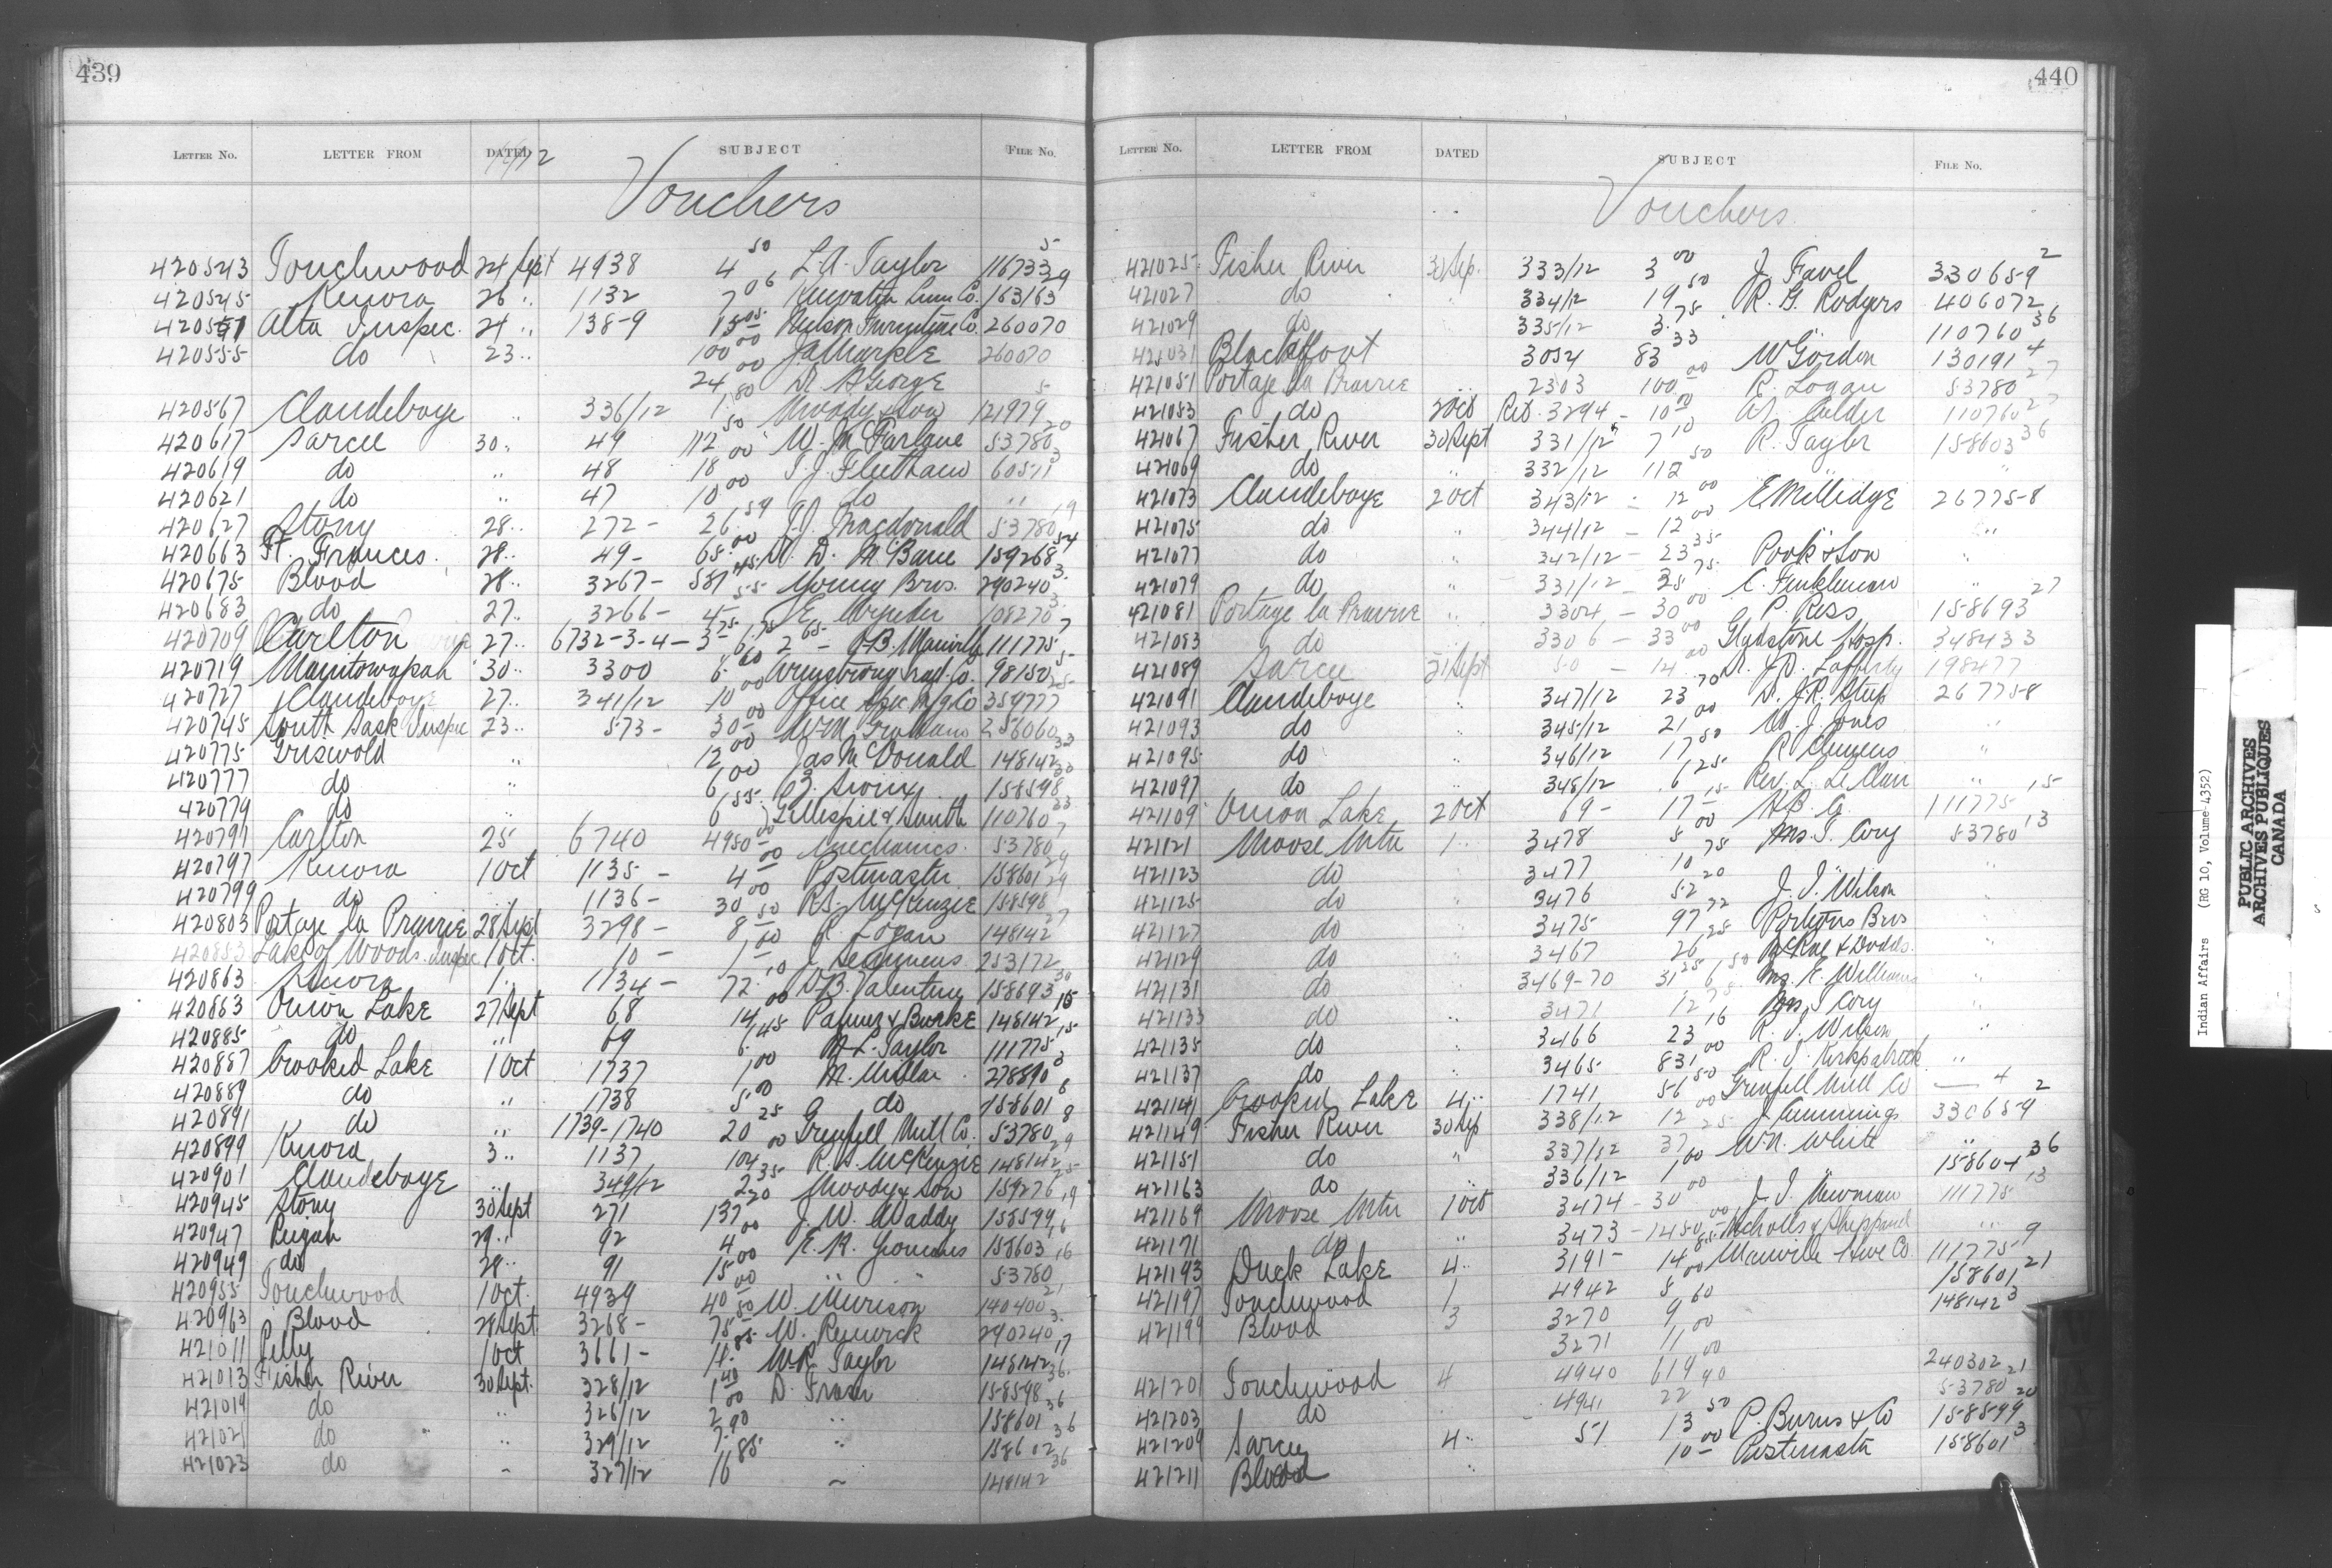 439
LETTER No. LETTER FROM DATED SUBJECT FILE No.
Vouchers
420543 Touchwood 24 Sept 4938 4 50 L.A. Taylor 116733 5
420545 Kenora 26 " 1132 7 06 Keewatin Lum Co. 163163 29
Alta Inspec. 24 " 138-9 15 05 Co. 260070
420555 do 23 " 100 00 J A Markle 260070
24 00
420567 Clandeboye " 336/12 1 80 Moody & Son 121979 5
420617 Sarcee 30 " 49 112 50 W. McFarlane 53780 20
420619 do " 48 18 00 T.J. Fleetham 60511 3
420621 do " 47 10 00 do " "
420627 Stony 28 " 272 - 26 59 J.J. Macdonald 53780 19
420663 Ft. Frances 28 " 49 - 65 00 159268 54
420675 Blood 28 " 3267 - 587 45 Young Bros. 290240 3
420683 do 27 " 3266 - 4 55 E 108270 3
420709 Carlton 27 " 6732-3-4 - 3 75 6 75 2 65 - 111775 7
420719 Manitowapah 30 " 3300 8 60 Armstrong Trad. Co. 98150 5
420727 Clandeboye 27 " 341/12 10 00 Office Spec Mfg Co 359777
420745 South Sask Inspec 23 " 573 - 30 00 W.M. Graham 256060
420775 Griswold " 12 00 Jas McDonald 148142 33
420777 do " 6 00 158598 30
420779 do " 6 55 Gillespie & Smith 110760 33
420791 Carlton 25 6740 4950 00 Mechanics 53780 7
420797 Kenora 1 Oct 1135 - 4 00 Postmaster 158601 29
420799 do " 1136 - 30 00 R.S. McKenzie 158598 29
420803 Portage la Prairie 28 Sept 3298 - 8 50 R. Logan 148142 27
420853 Lake of Woods Inspec 1 Oct. 10 - 1 00 J. 253172
420863 Kenora 1 " 1134 - 72 10 Valentine 158693 30
420863 Onion Lake 27 Sept 68 14 00 Palmer & Burke 148142 15
420885 do " 69 6 45 M L. Taylor 111775 15
420887 Crooked Lake 1 Oct 1737 1 00 M. Millar 278890 3
420889 do " 1738 5 00 do 158601 8
420891 do " 1739-1740 20 25 Grenfell Mill Co. 53780 8
420899 Kenora 3 " 1137 104 00 R.S. McKenzie 148142 29
420901 Clandeboye " 349/12 2 35 Moody & Son 159276 25
420945 Stony 30 Sept 271 137 20 J. W. Waddy 158599 19
420947 Peigan 29 " 92 4 00 E. H. 158603 16
420949 do 28 " 91 15 00 " " 53780 16
420955 Touchwood 1 Oct. 4939 40 00 W. Murison 140400 21
420963 Blood 28 Sept 3268 - 75 50 W. Renwick 290240 3
421011 Pelly 1 Oct 3661 - 11 85 W.R. Taylor 148142 17
421013 Fisher River 30 Sept. 328/12 1 40 D. Fraser 158598 36
421019 do " 326/12 2 00 " 158601 36
421021 do " 329/12 7 90 " 158602 36
421023 do " 327/12 16 85 " 148142 36
440
LETTER No. LETTER FROM DATED SUBJECT FILE No.
Vouchers
421025 Fisher River 30 Sep. 333/12 3 00 J. Favel 330659 2
421027 do " 334/12 19 50 R. G. Rodgers 406072
421029 do " 335/12 3 75 " 110760 36
421031 Blackfoot 3054 83 33 W Gordon 130191 4
421051 Portage la Prairie " 2303 100 00 R. Logan 53780 27
421053 do 2 Oct Ret. 3294 - 10 00 A. Calder 110760 27
421067 Fisher River 30 Sept 331/12 7 10 R. Taylor 158603 36
421069 do " 332/12 112 50 "
421073 Clandeboye 2 Oct 343/12 - 12 00 E Millidge 267758
421075 do " 344/12 - 12 00 "
421077 do " 342/12 - 23 35 Pook & Son "
421079 do " 331/12 - 25 75 C. Finkleman "
421081 Portage la Prairie " 3304 - 30 00 P. Ross 158693 27
421083 do " 3306 - 33 00 Gladstone Hosp. 348433
421089 Sarcee Sept 50 - 14 00 Dr. J.D. Lafferty 198477
421091 Clandeboye " 347/12 23 70 Dr. J.R. Steep 267758
421093 do " 345/12 21 00 W. J. Jones "
421095 do " 346/12 17 50 R Clemens "
421097 do " 348/12 6 25 Rev. L. "
421109 Onion Lake 2 Oct 69 - 17 15 H.B. Co. 111775 15
421121 Moose Mtn 1 " 3478 8 00 Mrs. I. Cory 53780 13
421123 do 3477 10 75 "
421125 do 3476 52 20 J. I. Wilson "
421127 do " 3475 97 72 Porteous Bros "
421129 do " 3467 26 25 McRae & Dodds "
421131 do " 3469-70 31 25 6 50 Mrs. E. Williams "
421133 do " 3471 12 75 Mrs I Cory "
421135 do " 3466 23 16 R. J. Wilson "
421137 do " 3465 831 00 R. J. Kirkpatrick "
421141 Crooked Lake 4 " 1741 56 50 Grenfell Mill Co 4
421149 Fisher River 30 Sep 338/12 12 00 J. Cummings 330659 2
421151 do " 337/12 37 25 Wn. White "
421163 do " 336/12 1 00 " 158604 36
421169 Moose Mtn 1 Oct 3474 - 30 00 J. I. Newman 111775 13
421171 do " 3473 - 1450 00 Nicholls & Sheppard "
421193 Duck Lake 4 " 3191 - 14 85 Manville Hwe Co 111775 9
421197 Touchwood 1 4942 8 00 158601 21
421199 Blood 3 3270 9 60 148142 3
3271 11 00
421201 Touchwood 4 4940 619 00 240302 21
421203 do " 4941 22 90 53780 20
421209 Sarcee 4 " 51 13 50 P. Burns & Co 158599
421211 Blood " 10 00 Postmaster 158601 3
Indian Affairs (RG 10, Volume 4352)
PUBLIC ARCHIVES
ARCHIVES PUBLIQUES
CANADA